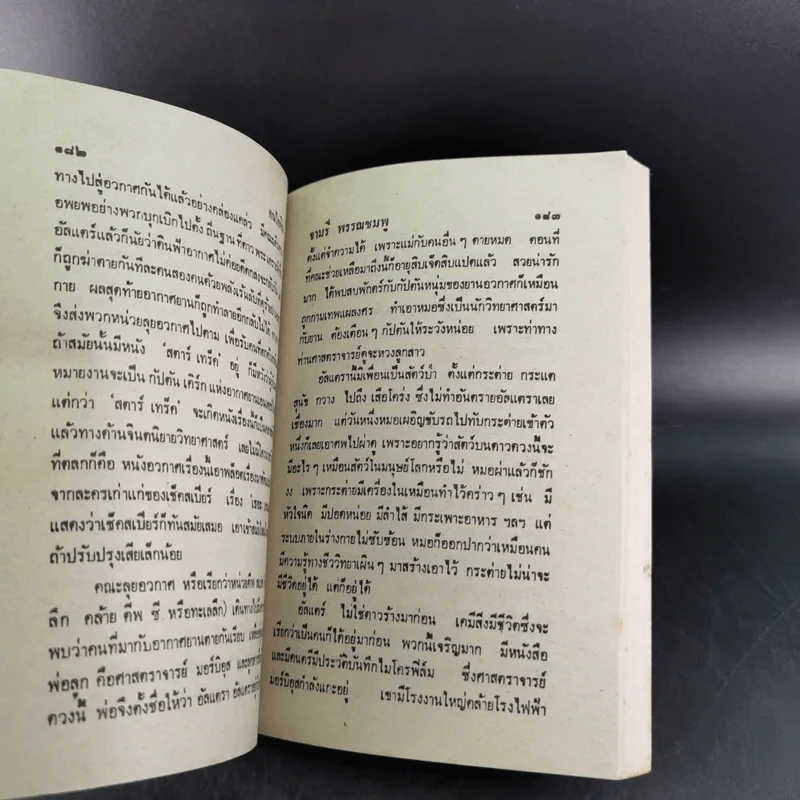 ๑๘๒
ทางไปสู่อวกาศกันได้แล้วอย่างคล่องแคล่ว มีคณะ
อพยพอย่างพวกบุกเบิกไปตั้ง ถิ่นฐาน ที่ดาว พระ
อัลแตร์แล้วก็นัยว่าดินฟ้าอากาศไม่ค่อยดี
ก็ถูกฆ่าตายกันทีละคนสองคนด้วยพลังเร้นลับ
กาย ผลสุดท้ายอวกาศยานก็ถูกทำลายอีกกลับไม่ได้
จึงส่งพวกหน่วยลุยอวกาศไปตาม เพื่อรับคน
ถ้าสมัยนั้นมีหนัง ‘สตาร์ เทร็ค’ อยู่ ก็
หมายงานจะเป็น กัปตัน เคิร์ก แห่งอวกาศยาน
แต่กว่า ‘สตาร์ เทร็ค’ จะเกิดหนังเรื่องนี้ก็
แล้วทางด้านจินตนิยายวิทยาศาสตร์ เลยไม่มี
ที่ตลกก็คือ หนังอวกาศเรื่องนี้เอาพล็อตเรื่อง
จากละครเก่าแก่ของเช็คสเปียร์ เรื่อง
แสดงว่าเช็คสเปียร์ก็ทันสมัยเสมอ เอาเข้า
ถ้าปรับปรุงเสียเล็กน้อย
คณะลุยอวกาศ หรือเรียกว่าหน่วยดีพ
ลึก คล้าย ดีพ ซี หรือทะเลลึก) เดินทางไป
พบว่าคนที่มากับอากาศยานตายกันเรียบ
พ่อลูก คือศาสตราจารย์ มอร์บิอุส และลูกสาว
ดวงนี้ พ่อจึงตั้งชื่อให้ว่า อัลแตรา
จามรี พรรณชมพู ๑๘๓
ตั้งแต่จำความได้ เพราะแม่กับคนอื่น ๆ ตายหมด ตอนที่
ที่คณะช่วยเหลือมาถึงนี้ก็อายุสิบเจ็ดสิบแปดแล้ว สวยน่ารัก
มาก ได้พบสบพักตร์กับกัปตันหนุ่มของยานอวกาศก็เหมือน
ถูกกามเทพแผลงศร ทำเอาหมอซึ่งเป็นนักวิทยาศาสตร์มา
กับยาน ต้องเตือน ๆ กัปตันให้ระวังหน่อย เพราะท่าทาง
ท่านศาสตราจารย์ดูจะหวงลูกสาว
อัลแตรานี้มีเพื่อนเป็นสัตว์ป่า ตั้งแต่กระต่าย กระแต
สุนัข กวาง ไปถึง เสือโคร่ง ซึ่งไม่ทำอันตรายอัลแตราเลย
เชื่องมาก แต่วันหนึ่งหมอเผอิญขับรถไปทับกระต่ายเข้าตัว
หนึ่งก็เลยเอาศพไปผ่าดู เพราะอยากรู้ว่าสัตว์บนดาวดวงนี้จะ
มีอะไร ๆ เหมือนสัตว์ในมนุษย์โลกหรือไม่ หมอผ่าแล้วก็ชัก
งง เพราะกระต่ายมีเครื่องในเหมือนทำไว้คร่าว ๆ เช่น มี
หัวใจนิด มีปอดหน่อย มีลำไส้ มีกระเพาะอาหาร ฯลฯ แต่
ระบบภายในร่างกายไม่ซับซ้อน หมอก็ออกปากว่าเหมือนคน
มีความรู้ทางชีววิทยาเผิน ๆ มาสร้างเอาไว้ กระต่ายไม่น่าจะ
มีชีวิตอยู่ได้ แต่ก็อยู่ได้
อัลแตร์ ไม่ใช่ดาวร้างมาก่อน เคมีสิ่งมีชีวิตซึ่งจะ
เรียกว่าเป็นคนก็ได้อยู่มาก่อน พวกนี้เจริญมาก มีหนังสือ
และมีดนตรีมีประวัติบันทึกไมโครฟิล์ม ซึ่งศาสตราจารย์
มอร์บิอุสกำลังแกะอยู่ เขามีโรงงานใหญ่คล้ายโรงไฟฟ้า